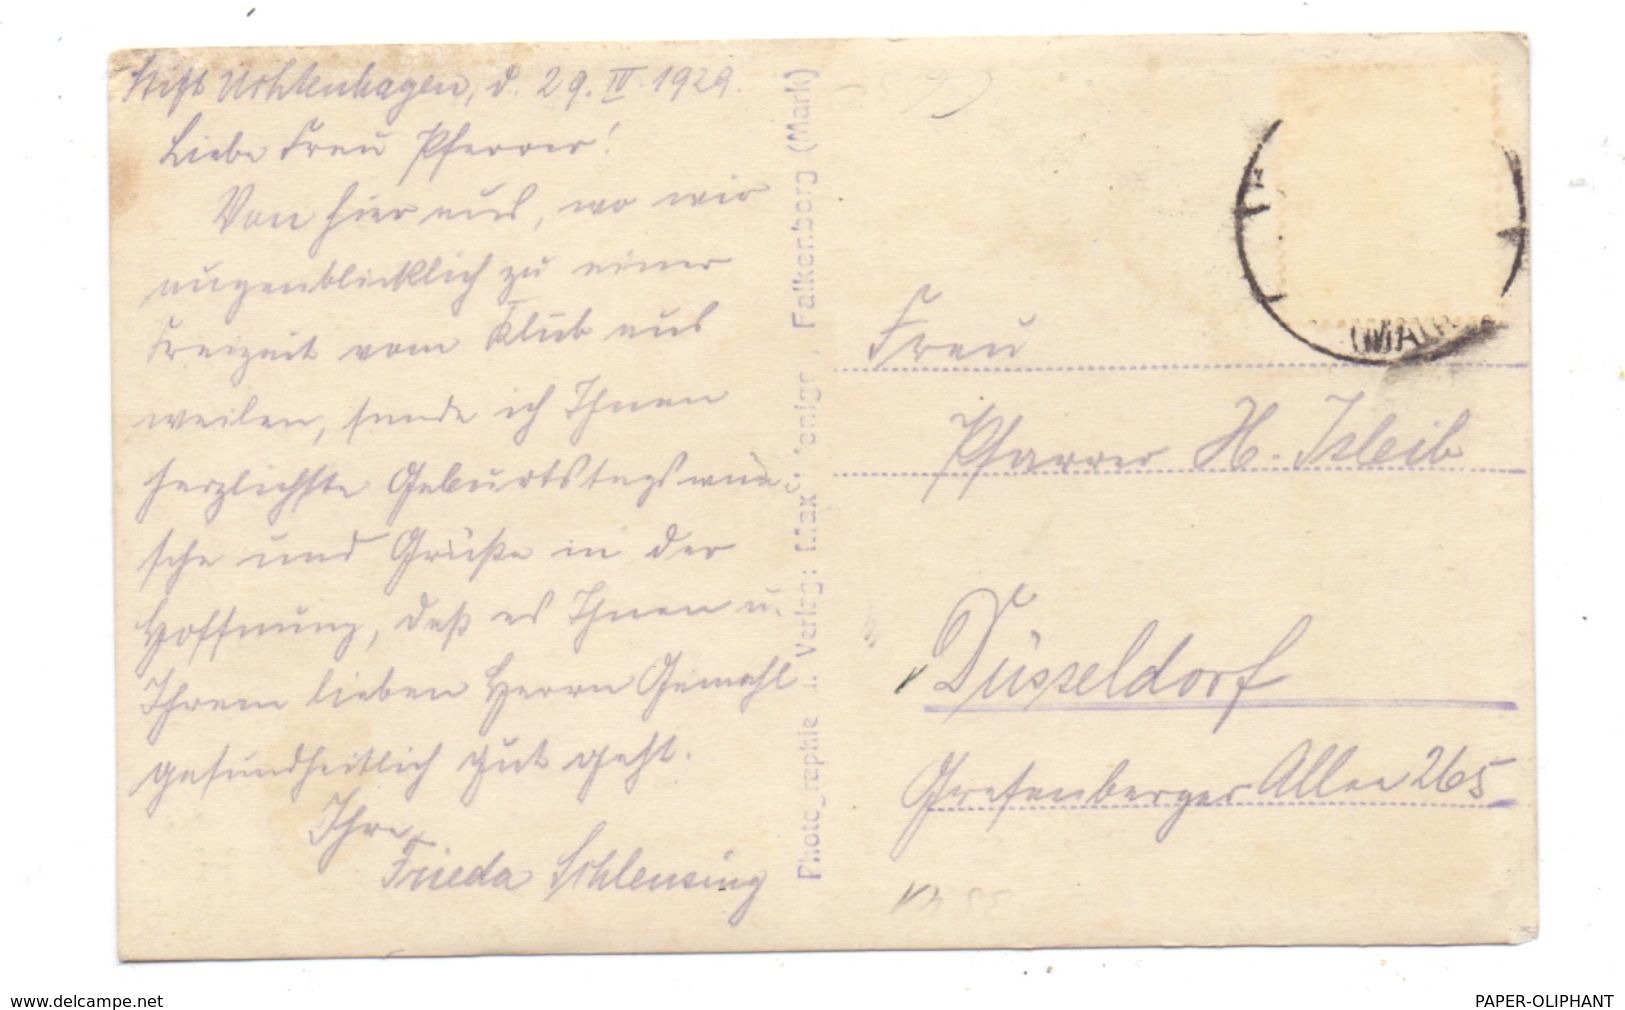 Stift Uchtenhagen, d. 29. IV. 1929.
Liebe Frau Pfarrer!
Von hier aus, wo wir
augenblicklich zu einer
Freizeit vom Klub aus
weilen, sende ich Ihnen
herzlichste Geburtstagswün-
sche und Grüße in der
Hoffnung, daß es Ihnen u.
Ihrem lieben Herrn Gemahl
gesundheitlich gut geht.
Ihre
Frieda Schleusing
Photographie u. Verlag: Max Falkenberg (Mark)
(MARK
Frau
Pfarrer H. Isleib
Düsseldorf
Grafenberger Allee 265
www.delcampe.net
PAPER-OLIPHANT